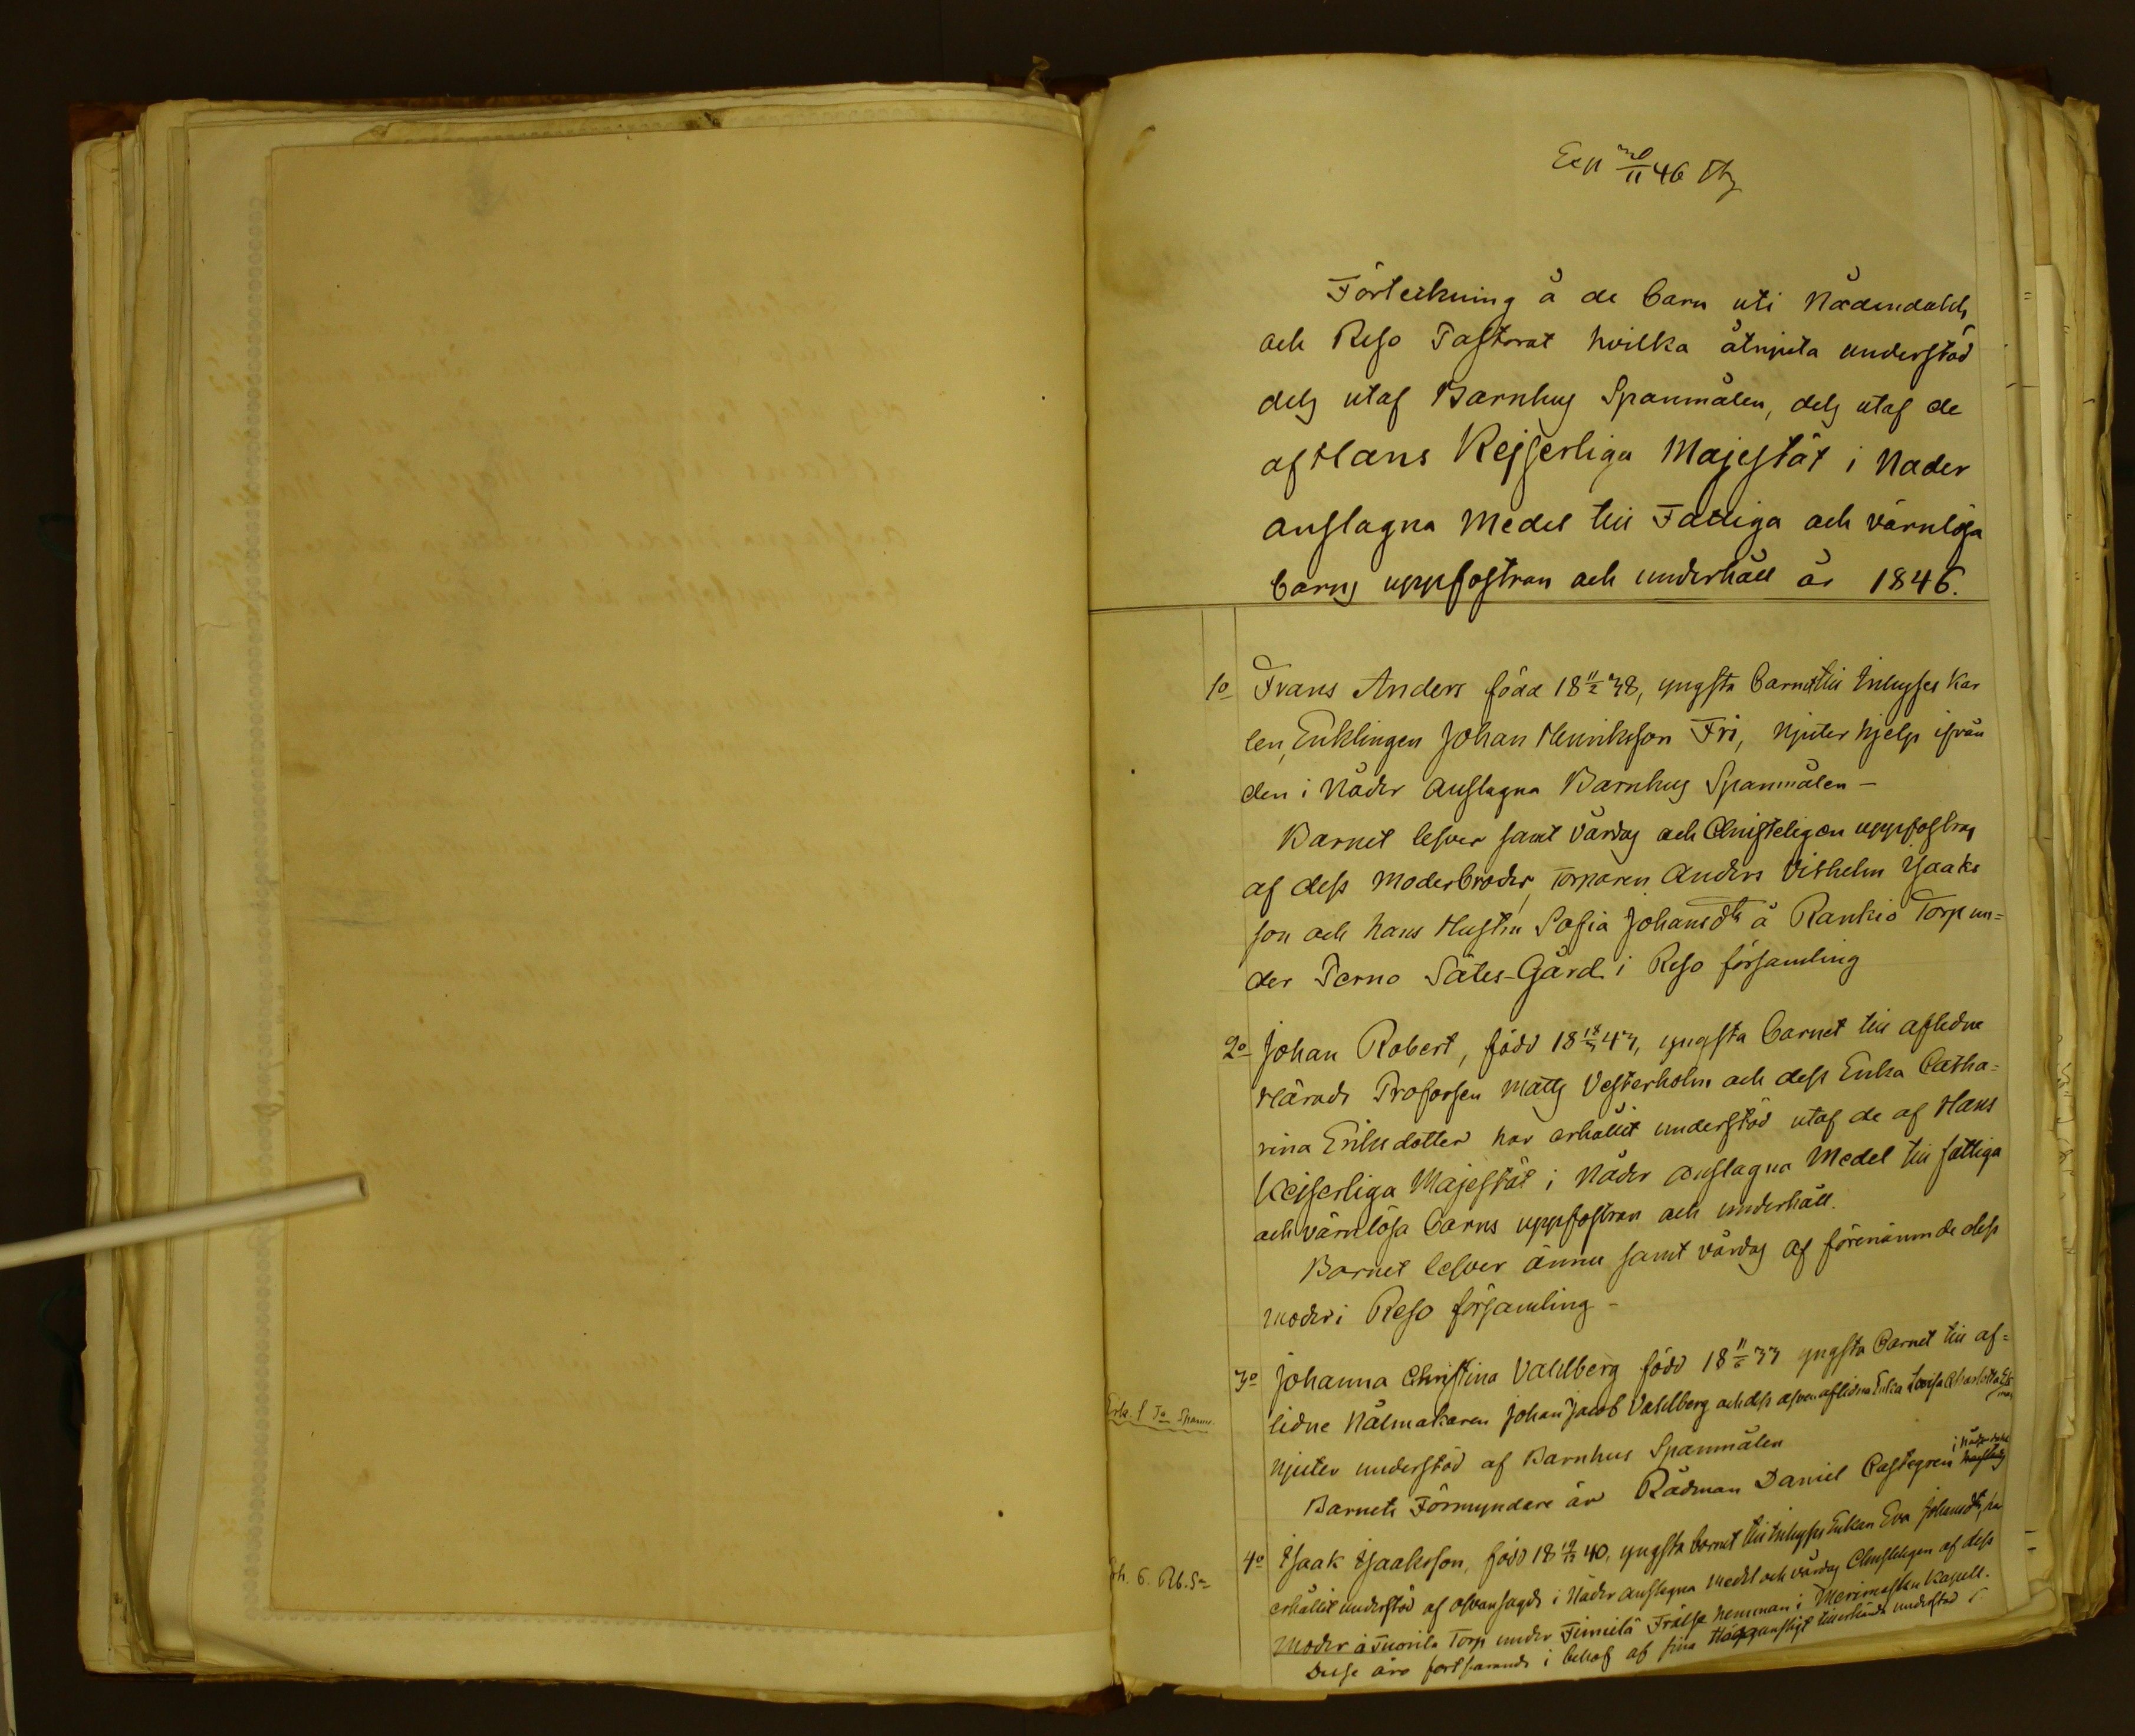 Exp 30/11 46
Förteckning å de barn uti Nådendahls
och Reso Pastorat hvilka åtnjuta understöd
dels utaf Barnhus Spanmålen, dels utaf de
af Hans Kejserliga Majestät i Nåder
anslagna Medel till Fattiga och värnlösa
barns uppfostran och underhåll år 1846.
1o Frans Anders född 18 11/2 38, yngsta barnet till Inhyses kar
len, Enklingen Johan Henriksson Fri, njuter hjelp ifrån
den i Nåder anslagna Barnhus Spanmålen –
Barnet lefver samt vårdas och Christeligen uppfostras
af dess Moderbroder, Torparen Anders Vilhelm Isaaks
son och hans Hustru Sofia Johansdtr å Rankio Torp un=
der Terno Säteś-Gård i Reso församling
2o Johan Robert, född 18 18/3 43, yngsta barnet till aflidne
Härads Profossen Matts Vesterholm och dess Enka Catha=
rina Eriksdotter har erhållit understöd utaf de af Hans
Kejserliga Majestät i Nåder anslagna Medel till fattiga
och värnlösa barns uppfostran och underhåll.
Barnet lefver ännu samt vårdas af förenämnde dess
moder i Reso församling –
3o Johanna Christina Vahlberg född 18 11/6 33 yngsta barnet till af=
lidne Nålmakaren Johan Jacob Vahlberg och dess äfven aflidna Enka Lovisa Charlotta
Erh. 1 Ta Spanm.
njuter understöd af Barnhus Spanmålen
Barnets Förmyndare är Rådman Daniel Castegren i Nådendahl
4o Isaak Isaaksson, född 18 19/12 40, yngsta barnet till Inhyses Enkan Eva Johansdtr, har
Erh. 6. Rb. Sr
erhållit understöd af ofvansagde i Nåder anslagna Medel och vårdas Christeligen af dess
Moder å Juonila Torp under Fimiilä Frälse hemman i Merimasku Kapell.
Desse äro fortfarande i behof af sina Höggunstigt tillerkända understöd